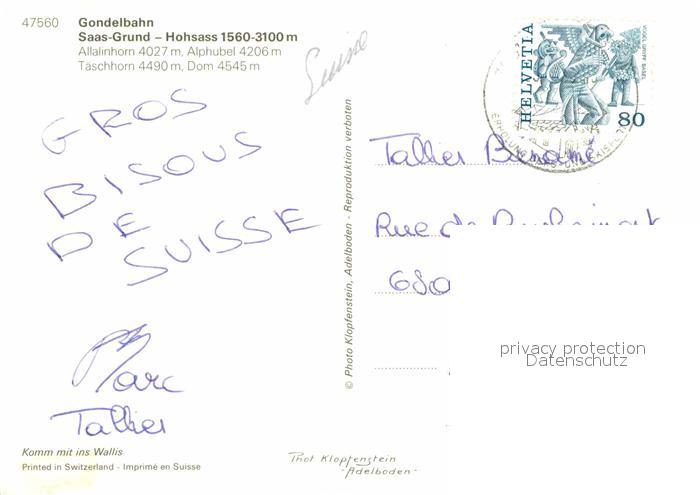 47560 Gondelbahn
Saas-Grund – Hohsass 1560-3100 m
Allalinhorn 4027 m, Alphubel 4206 m
Täschhorn 4490 m, Dom 4545 m
Suisse
GROS
BISOUS
DE
SUISSE
Marc
Tallier
Komm mit ins Wallis
Printed in Switzerland - Imprimé en Suisse
© Photo Klopfenstein, Adelboden - Reproduktion verboten
HELVETIA
VOGEL GRYFF BASEL
80
Tallier
Rue de
680
privacy protection
Datenschutz
Phot. Klopfenstein
-Adelboden-